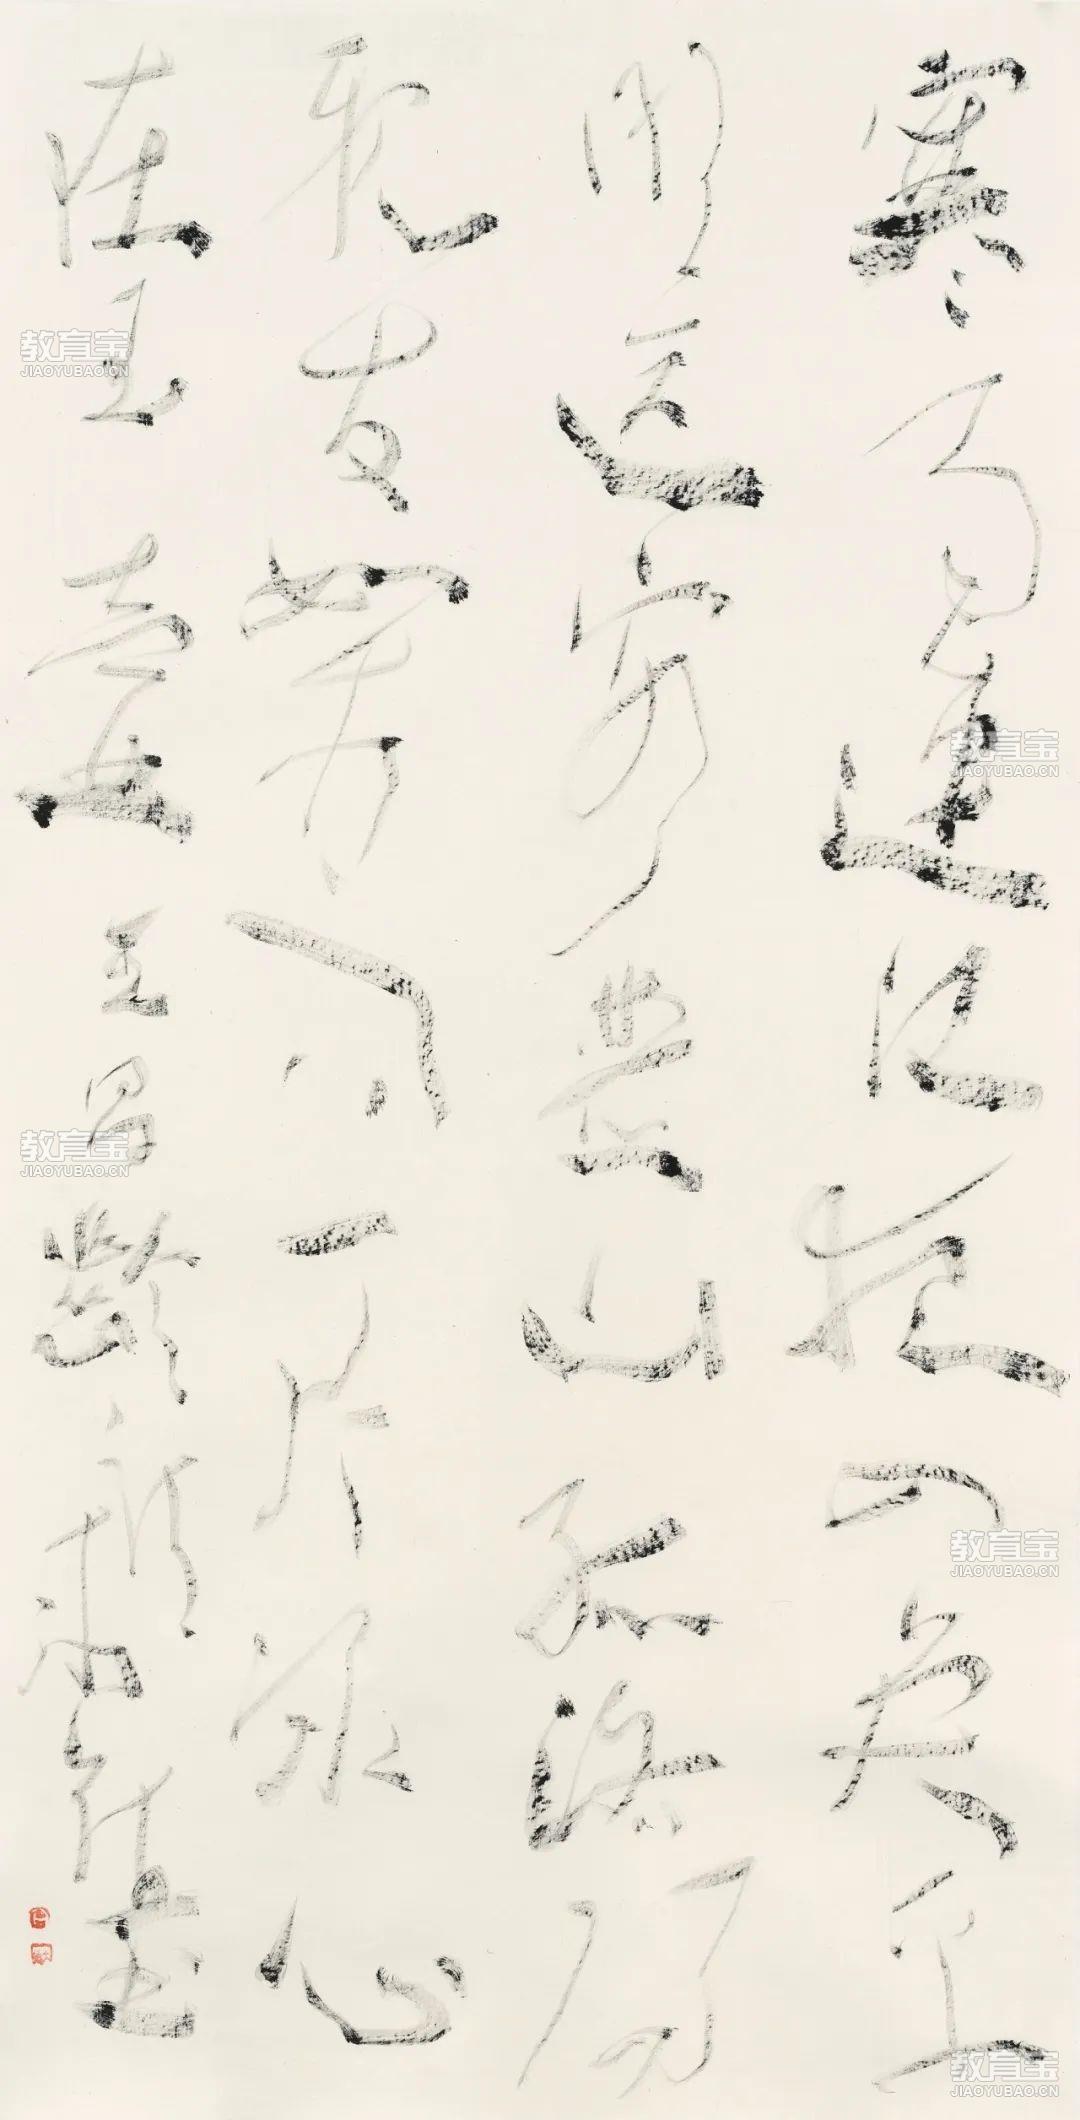 寒雨連江夜入吳平
明送客楚山孤洛陽
親友如相問一片冰心
在玉壺 王昌齡 書
教育宝
JIAOYUBAO.CN
教育宝
JIAOYUBAO.CN
教育宝
JIAOYUBAO.CN
教育宝
JIAOYUBAO.CN
教育宝
JIAOYUBAO.CN